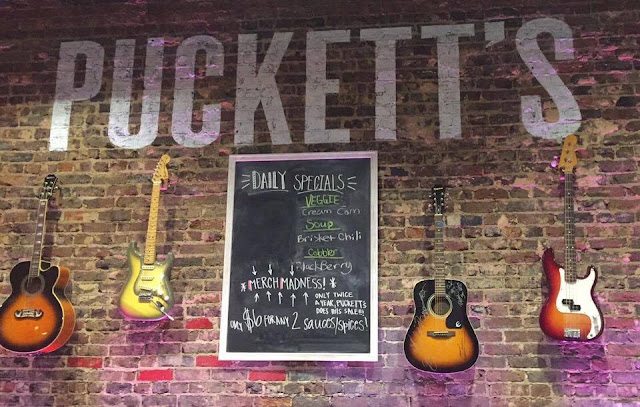 PUCKETT'S
DAILY SPECIALS
VEGGIE
Cream Corn
Soup
Brisket Chili
Cobbler
BlackBerry
*MERCH MADNESS!*
ONLY TWICE
A YEAR, PUCKETT'S
DOES THIS SALE!!!
ONLY $6 FOR ANY 2 SAUCES/SPICES!